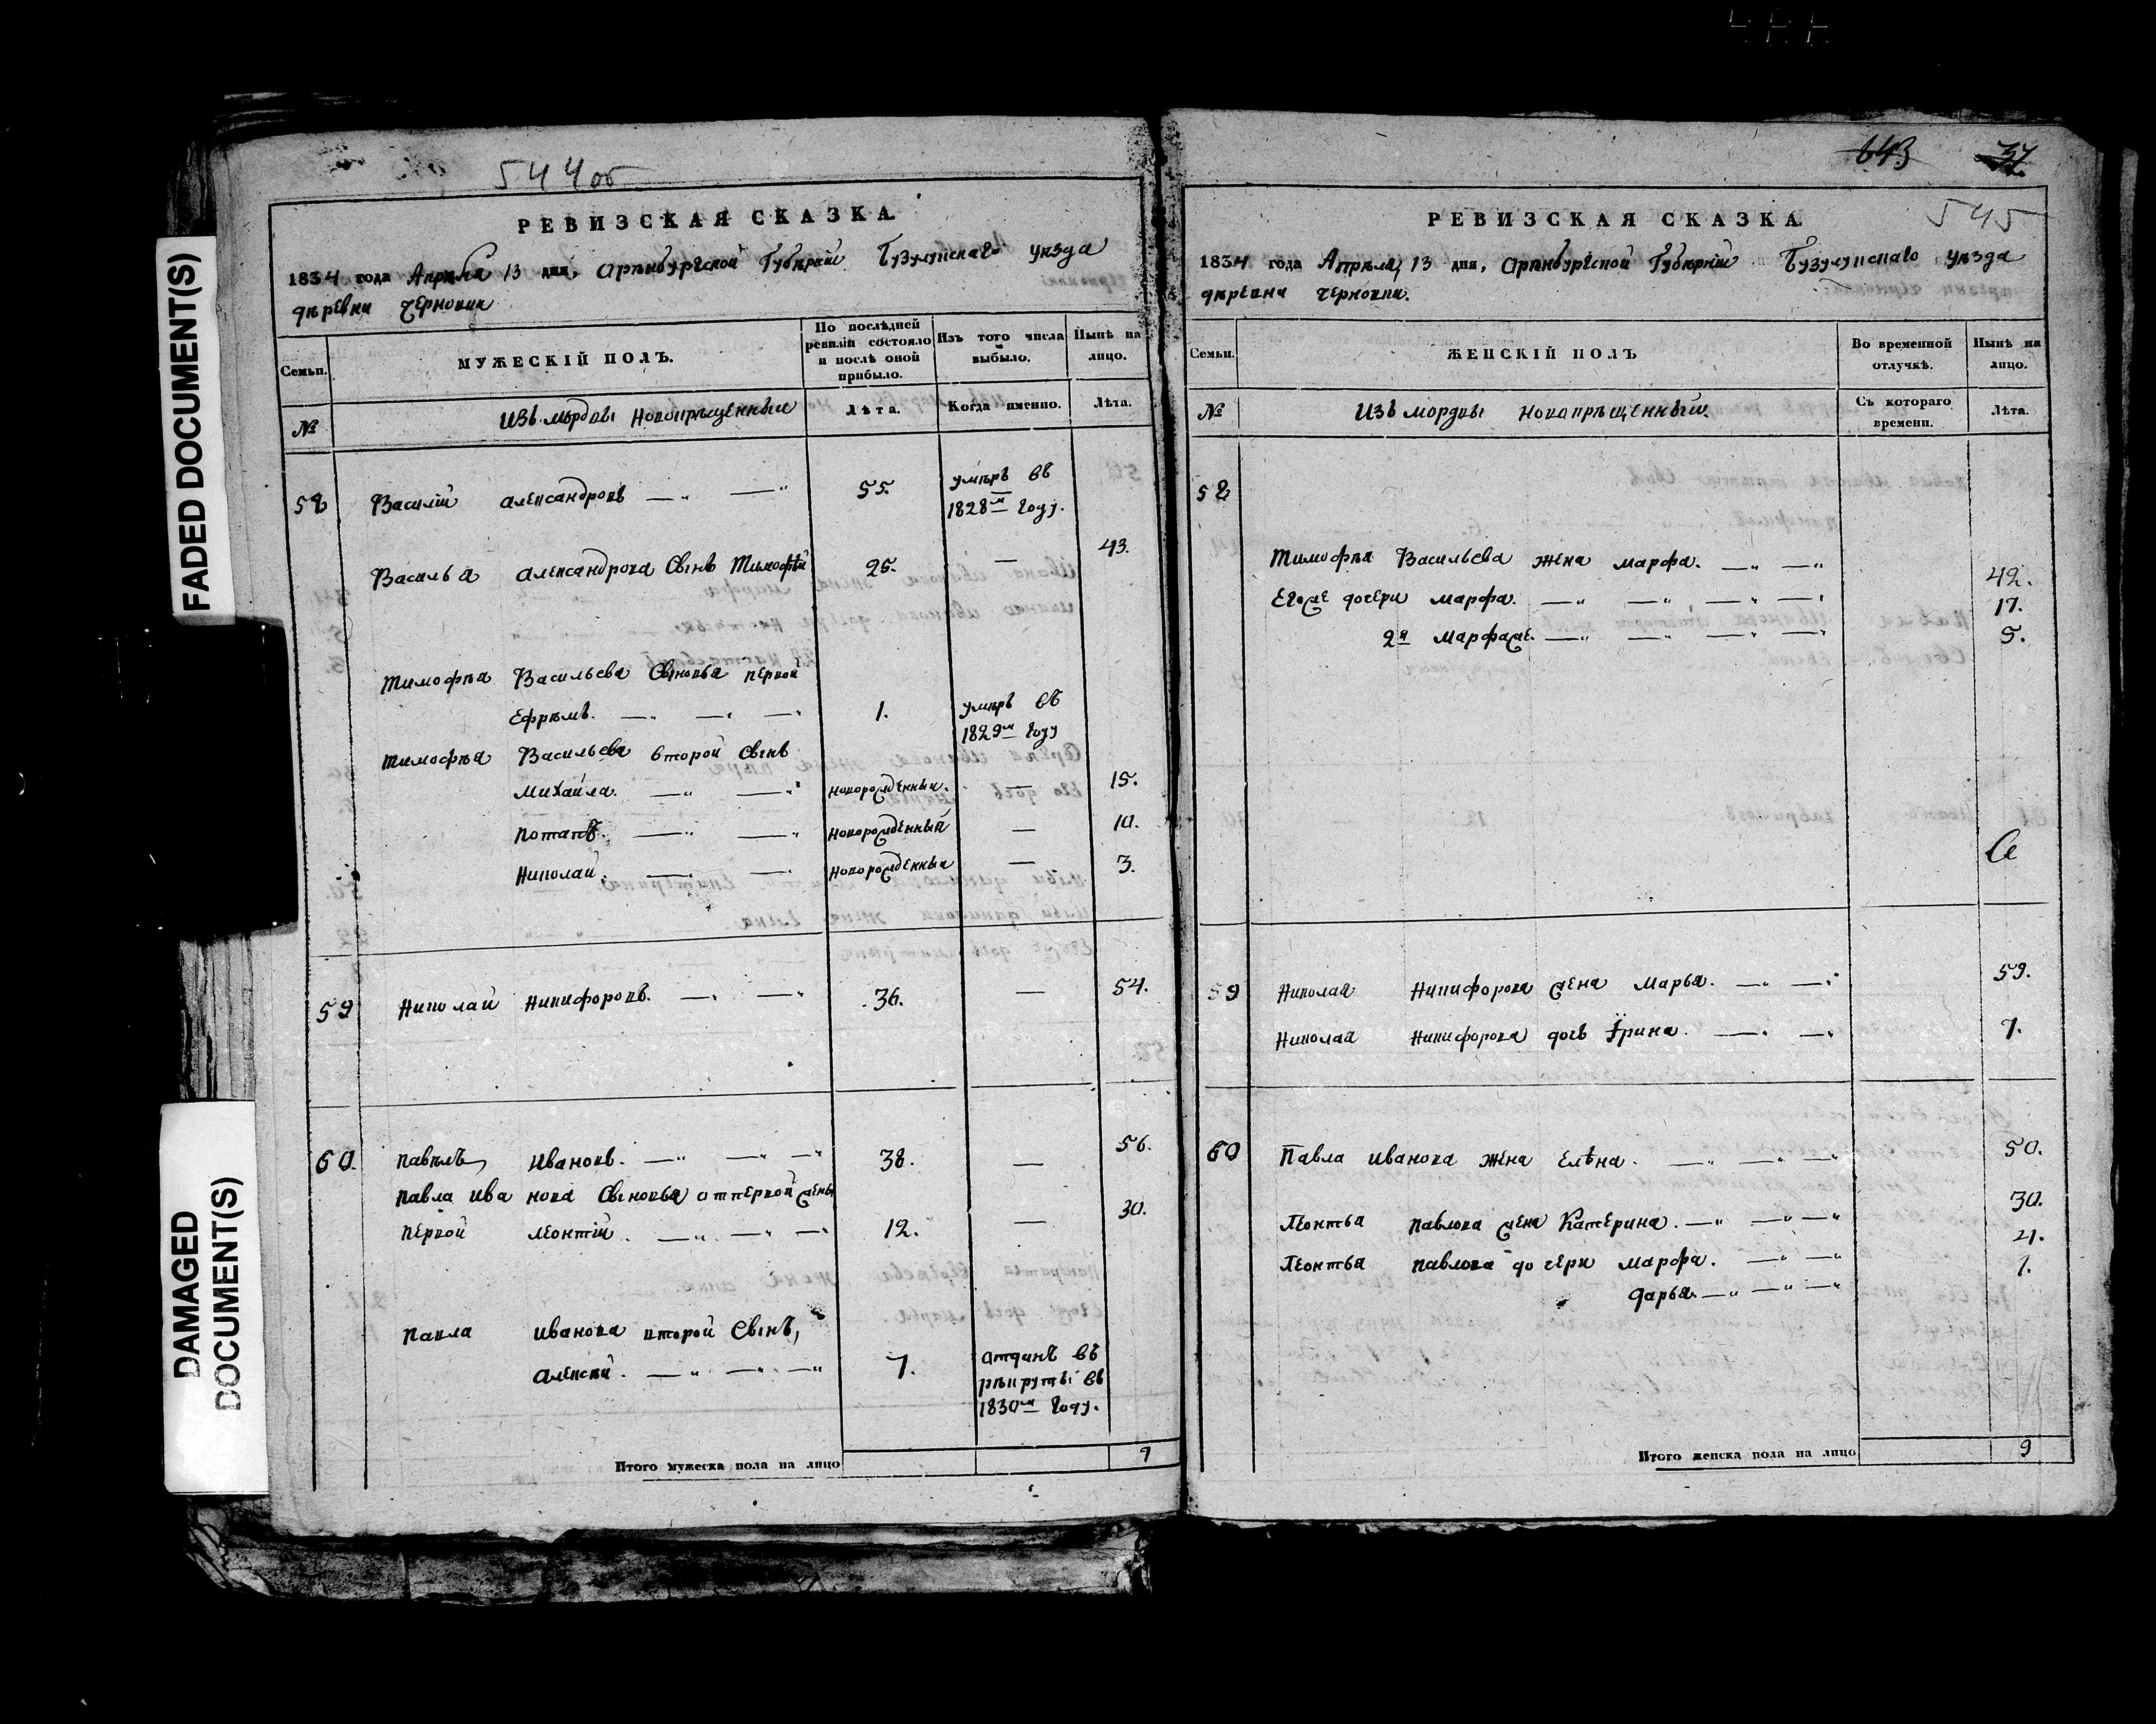 FADED DOCUMENT(S)
DAMAGED
DOCUMENT(S)
544об
РЕВИЗСКАЯ СКАЗКА
1834 года Апреля 13 дня, Оренбургской Губернии Бузулукскаго уезда
деревни Черновки
Семьи.
МУЖЕСКІЙ ПОЛЪ.
По послѣдней ревизіи состояло и послѣ оной прибыло.
Изъ того числа выбыло.
Нынѣ на лицо.
№
Изъ мордвы новокрещенныи
Лѣта.
Когда именно.
Лѣта.
58 Василий Александровъ 55. умеръ въ
1828м году.
Василья Александрова сынъ Тимофѣй 25. — 43.
Тимофея Васильева сыновья первой
Ефремъ. 1. умеръ въ
1829м году
Тимофея Васильева второй сынъ
Михайла. новорожденныи. — 15.
Потапъ. новорожденный — 10.
Николай. новорожденныи — 3.
59 Николай Никифоровъ. 36. — 54.
60. Павелъ Ивановъ. 38. — 56.
Павла Иванова сыновья отпервой жены
первой Леонтій. 12. — 30.
Павла Иванова второй сынъ,
Алексей. 7. отданъ въ
рекруты въ
1830м году.
Итого мужеска пола на лицо 9
643 37
545
РЕВИЗСКАЯ СКАЗКА
1834 года Апреля 13 дня, Оренбургской Губернии Бузулукскаго уезда
деревни Черновки.
Семьи.
ЖЕНСКІЙ ПОЛЪ
Во временной отлучкѣ.
Нынѣ на лицо.
№
Изъ мордвы новокрещенныи.
Съ котораго времени.
Лѣта.
58
Тимофея Васильева жена Марфа. 42.
Егоже дочери Марфа. 17.
2я Марфаже. 5.
59 Николая Никифорова жена Марья. 59.
Николая Никифорова дочь Ірина. 7.
60 Павла Иванова жена Елѣна. 50.
Леонтья Павлова жена Катерина. 30.
Леонтья Павлова дочери Марфа. 4.
Дарья. 1.
Итого женска пола на лицо 9